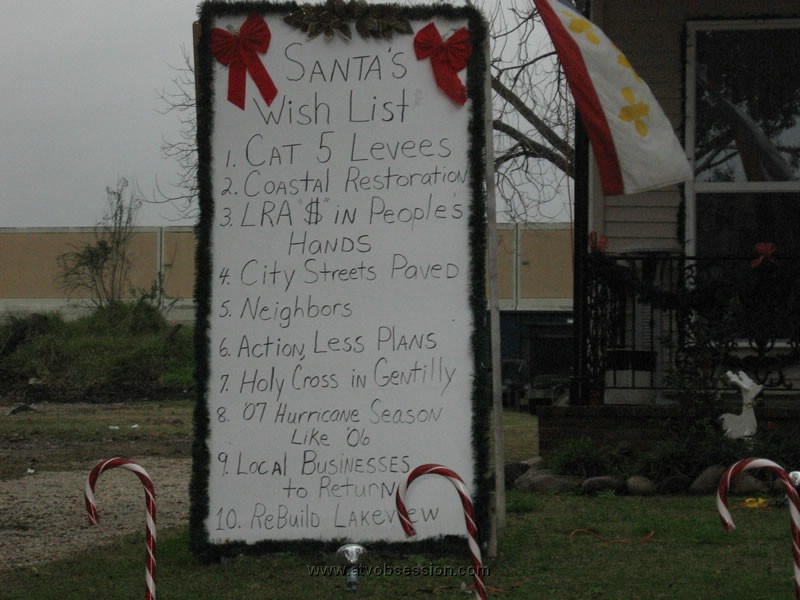 Santa's
Wish List
1. Cat 5 Levees
2. Coastal Restoration
3. LRA "$" in People's
Hands
4. City Streets Paved
5. Neighbors
6. Action, Less Plans
7. Holy Cross in Gentilly
8. '07 Hurricane Season
Like '06
9. Local Businesses
to Return
10. ReBuild Lakeview
www.stvobsession.com